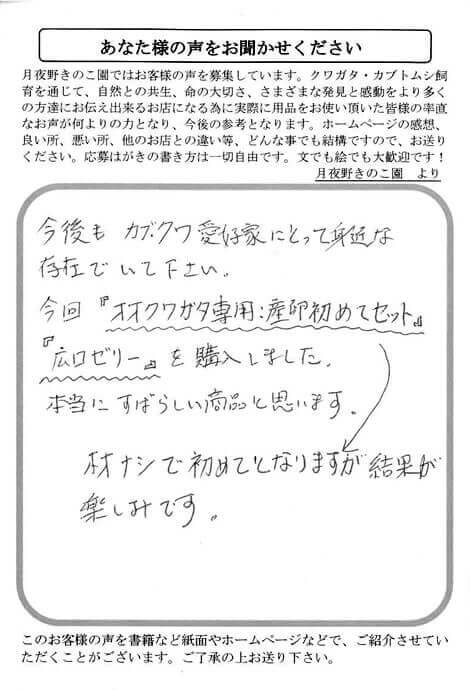 あなた様の声をお聞かせください
月夜野きのこ園ではお客様の声を募集しています。クワガタ・カブトムシ飼
育を通じて、自然との共生、命の大切さ、さまざまな発見と感動をより多く
の方達にお伝え出来るお店になる為に実際に用品をお使い頂いた皆様の率直
なお声が何よりの力となり、今後の参考となります。ホームページの感想、
良い所、悪い所、他のお店との違い等、どんな事でも結構ですので、お送り
ください。応募はがきの書き方は一切自由です。文でも絵でも大歓迎です！
月夜野きのこ園　より
今後も カブクワ愛好家にとって身近な
存在でいて下さい。
今回『オオクワガタ専用:産卵初めてセット』
『広口ゼリー』を購入しました。
本当にすばらしい商品と思います。
材ナシで初めてとなりますが結果が
楽しみです。
このお客様の声を書籍など紙面やホームページなどで、ご紹介させてい
ただくことがございます。ご了承の上お送り下さい。